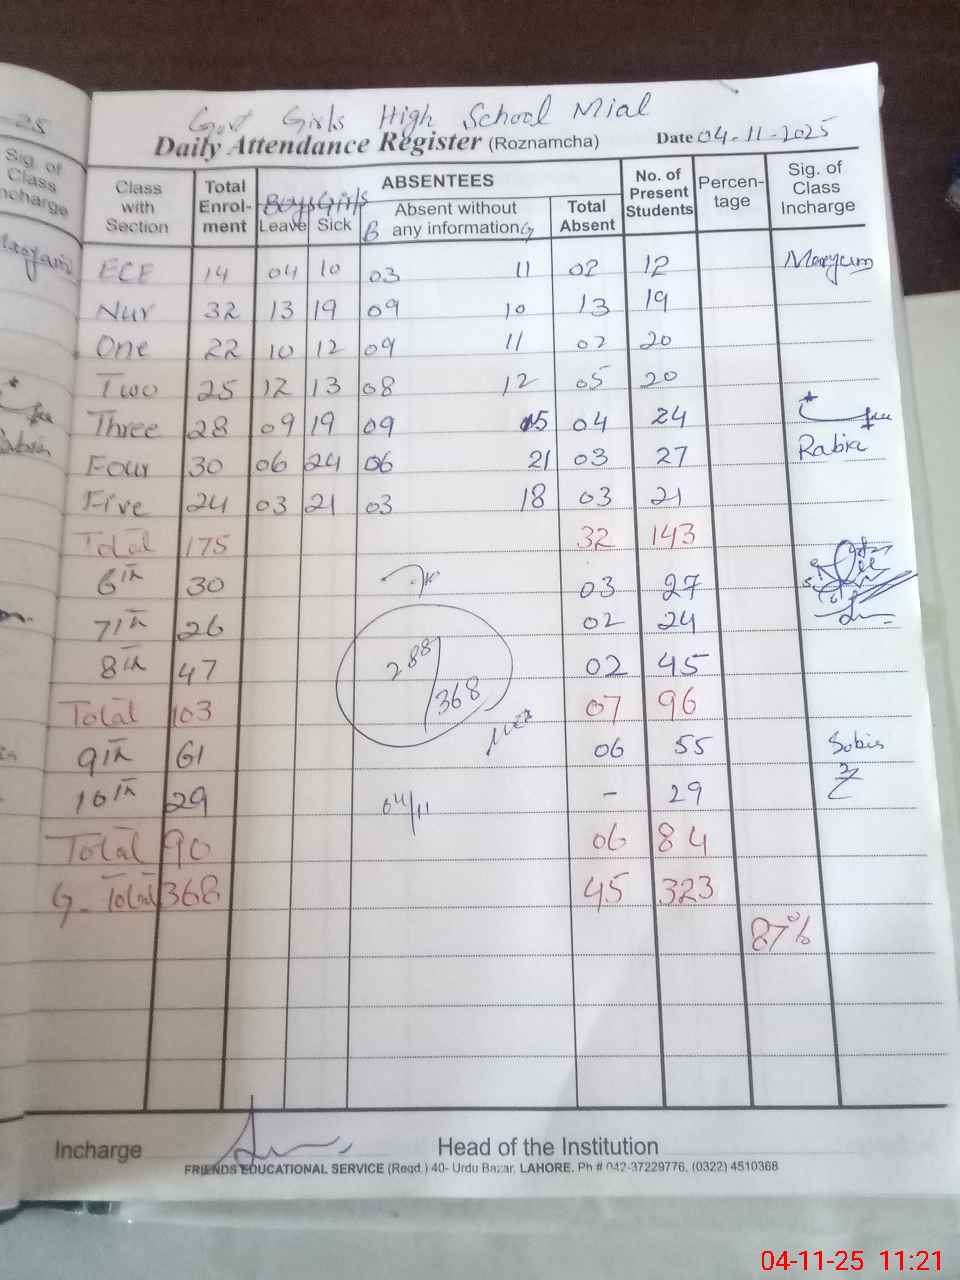 -25
Sig. of
Class
ncharge
Govt Girls High School Mial
Daily Attendance Register (Roznamcha) Date 04-11-2025
Class with Section Total Enrol-ment ABSENTEES No. of Present Students Percen-tage Sig. of Class Incharge
Boys Girls
Leave Sick B Absent without any information G Total Absent
ECE 14 04 10 03 11 02 12 Maryum
Nur 32 13 19 09 10 13 19
One 22 10 12 09 11 02 20
Two 25 12 13 08 12 05 20
Three 28 09 19 09 15 04 24
Four 30 06 24 06 21 03 27 Rabia
Five 24 03 21 03 18 03 21
Total 175 32 143
6th 30 03 27
7th 26 02 24
8th 47 02 45
288/368
Total 103 07 96
9th 61 06 55 Sobia
10th 29 04/11 - 29
Total 90 06 84
G. Total 368 45 323
87%
Incharge Head of the Institution
FRIENDS EDUCATIONAL SERVICE (Regd.) 40- Urdu Bazar, LAHORE. Ph # 042-37229776, (0322) 4510368
04-11-25 11:21